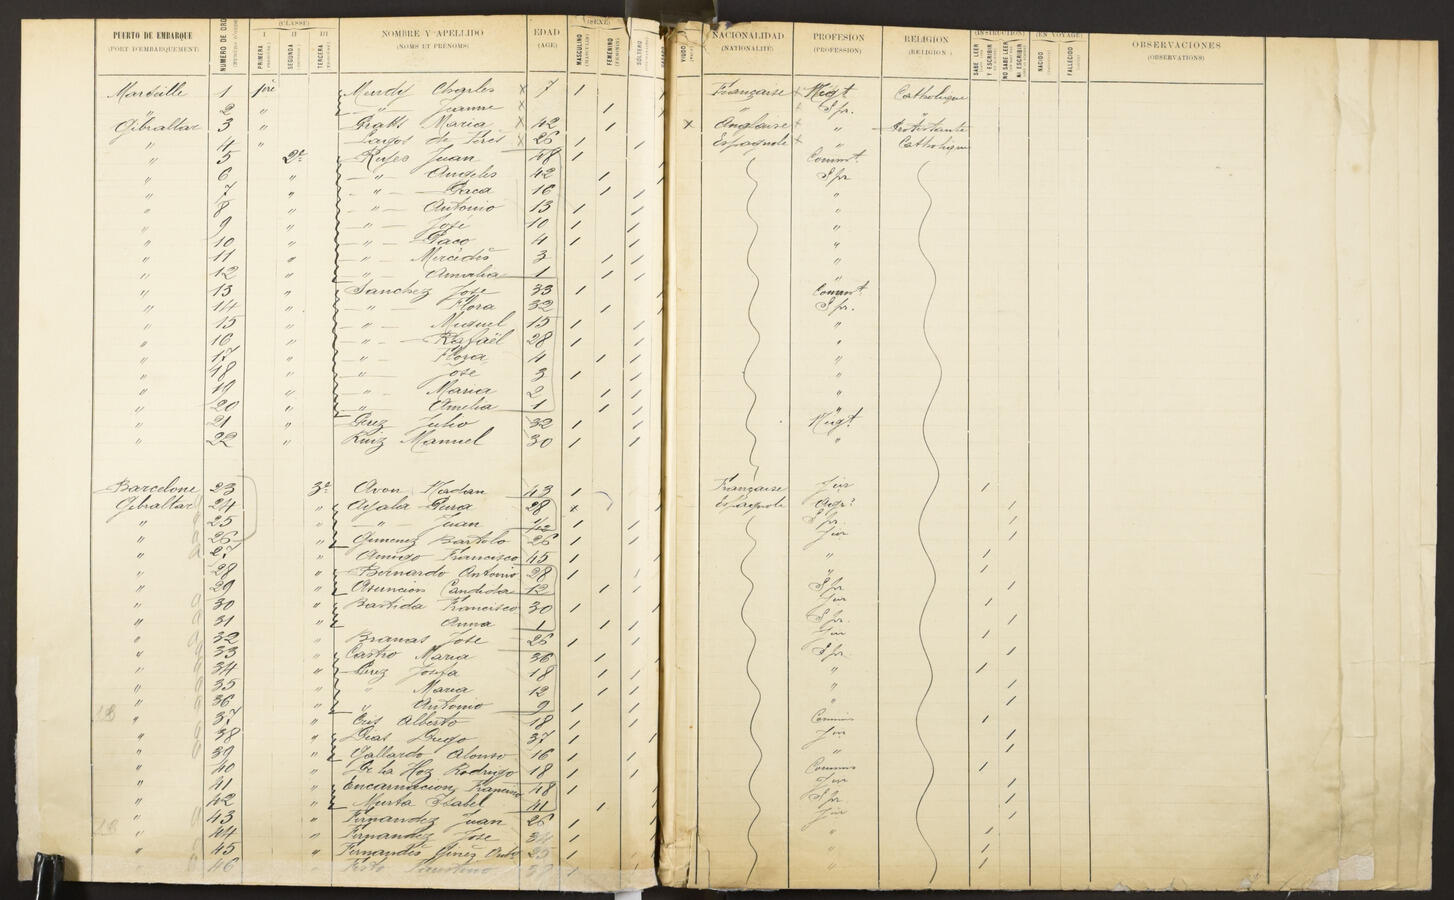 PUERTO DE EMBARQUE (PORT D'EMBARQUEMENT) NÚMERO DE ORD (CLASSE) I PRIMERA II SEGUNDA III TERCERA NOMBRE Y APELLIDO (NOMS ET PRÉNOMS) EDAD (AGE) (SEXE) MASCULINO FEMENINO SOLTERO VIUDO NACIONALIDAD (NATIONALITÉ) PROFESION (PROFESSION) RELIGION (RELIGION) (INSTRUCTION) SABE LEER Y ESCRIBIR NO SABE LEER NI ESCRIBIR (EN VOYAGE) NACIDO FALLECIDO OBSERVACIONES (OBSERVATIONS)
Marseille 1 Charles 7 Française Negt Catholique
" 2 " " Jeanne " S pr. "
Gibraltar 3 " Maria 42 Anglaise " Protestante
" 4 " 26 Espagnole Catholique
" 5 2e Juan 48 Commt.
" 6 " " Angeles 42 S pr
" 7 " " Paca 16 "
" 8 " " Antonio 13 "
" 9 " " José 10 "
" 10 " " Paco 4 "
" 11 " " Mercédès 3 "
" 12 " " Amalia 1 "
" 13 " Sanchez Jose 33 Commt.
" 14 " " Flora 32 S pr.
" 15 " " Miguel 15 "
" 16 " " Rafaël 28 "
" 17 " " Flora 4 "
" 18 " " Jose 3 "
" 19 " " Maria 2 "
" 20 " " Amelia 1 "
" 21 " Perez Julio 32 Negt.
" 22 " Ruiz Manuel 30 "
Barcelone 23 3e Avon 43 Française Jur
Gibraltar 24 " Ayala 28 Espagnole
" 25 " " Juan S pr.
" 26 " Gimenez Bartolo 26 Jur
" 27 " Amigo Francisco 45 "
" 28 " Bernardo Antonio 28 "
" 29 " Asuncion Candida 12 S pr
" 30 " Bastida Francisco 30 Jur
" 31 " Anna 1 S pr.
" 32 " Branas Jose 26 Jur
" 33 " Castro Maria 36 S pr.
" 34 " Perez Josefa 18 "
" 35 " " Maria 12 "
" 36 " " Antonio 9 "
" 37 " Alberto 18 Commis
" 38 " Dias Diego 37 Jur
" 39 " Gallardo Alonso 16 "
" 40 " De la Hoz Rodrigo 18 Commis
" 41 " Encarnacion Francisco 48 Jur
" 42 " Murta Isabel 41 S pr.
" 43 " Fernandez Juan 26 Jur
" 44 " Fernandez Jose "
" 45 " Fernandes Ginés 25 "
" 46 " Faustino "